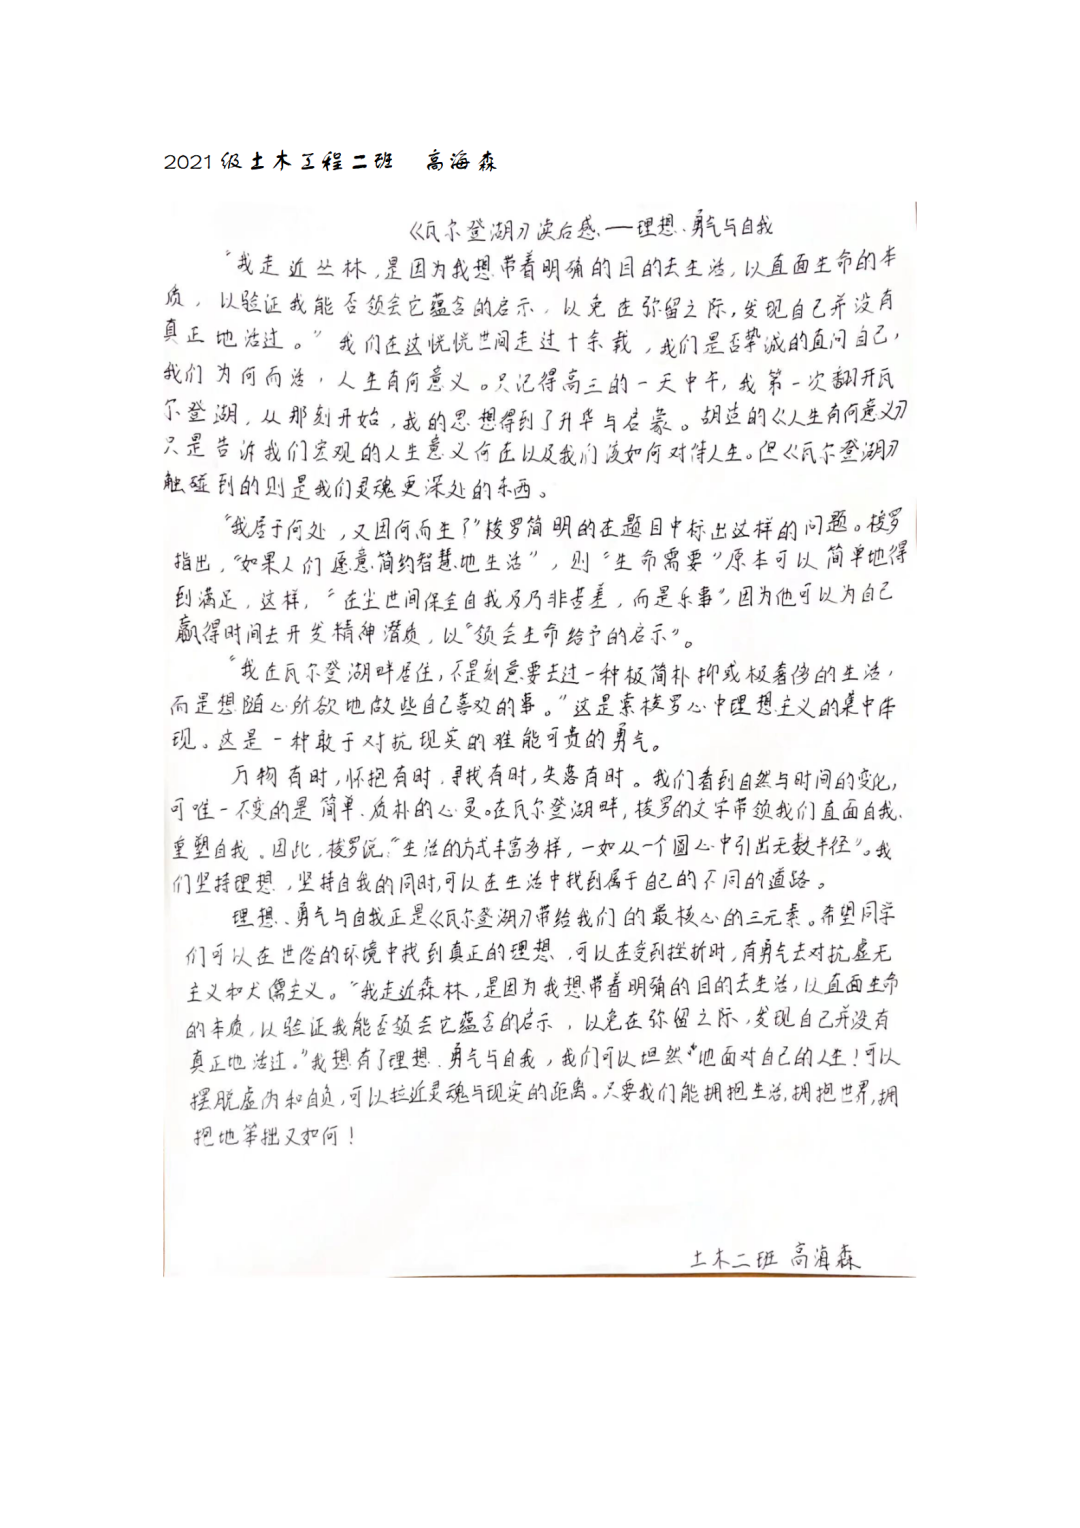 2021级土木工程二班 高海森
《瓦尔登湖》读后感——理想、勇气与自我
“我走近丛林，是因为我想带着明确的目的去生活，以直面生命的本
质，以验证我能否领会它蕴含的启示，以免在弥留之际，发现自己并没有
真正地活过。”我们在这恍恍世间走过十余载，我们是否挚诚的直问自己，
我们为何而活，人生有何意义。只记得高三的一天中午，我第一次翻开瓦
尔登湖，从那刻开始，我的思想得到了升华与启蒙。胡适的《人生有何意义》
只是告诉我们宏观的人生意义何在以及我们该如何对待人生。但《瓦尔登湖》
触碰到的则是我们灵魂更深处的东西。
“我居于何处，又因何而生？”梭罗简明的在题目中标出这样的问题。梭罗
指出，“如果人们愿意简约智慧地生活”，则“生命需要”原本可以简单地得
到满足，这样，“在尘世间保全自我及乃非苦差，而是乐事”，因为他可以为自己
赢得时间去开发精神潜质，以“领会生命给予的启示”。
“我在瓦尔登湖畔居住，不是刻意要去过一种极简朴抑或极奢侈的生活，
而是想随心所欲地做些自己喜欢的事。”这是索梭罗心中理想主义的集中体
现。这是一种敢于对抗现实的难能可贵的勇气。
万物有时，怀抱有时，寻找有时，失落有时。我们看到自然与时间的变化，
可唯一不变的是简单、质朴的心灵。在瓦尔登湖畔，梭罗的文字带领我们直面自我、
重塑自我。因此，梭罗说，“生活的方式丰富多样，一如从一个圆心中引出无数半径”。我
们坚持理想，坚持自我的同时，可以在生活中找到属于自己的不同的道路。
理想、勇气与自我正是《瓦尔登湖》带给我们的最核心的三元素。希望同学
们可以在世俗的环境中找到真正的理想，可以在受到挫折时，有勇气去对抗虚无
主义和犬儒主义。“我走近森林，是因为我想带着明确的目的去生活，以直面生命
的本质，以验证我能否领会它蕴含的启示，以免在弥留之际，发现自己并没有
真正地活过。”我想有了理想、勇气与自我，我们可以坦然地面对自己的人生！可以
摆脱虚伪和自负，可以拉近灵魂与现实的距离。只要我们能拥抱生活，拥抱世界，拥
抱地笨拙又如何！
土木二班 高海森